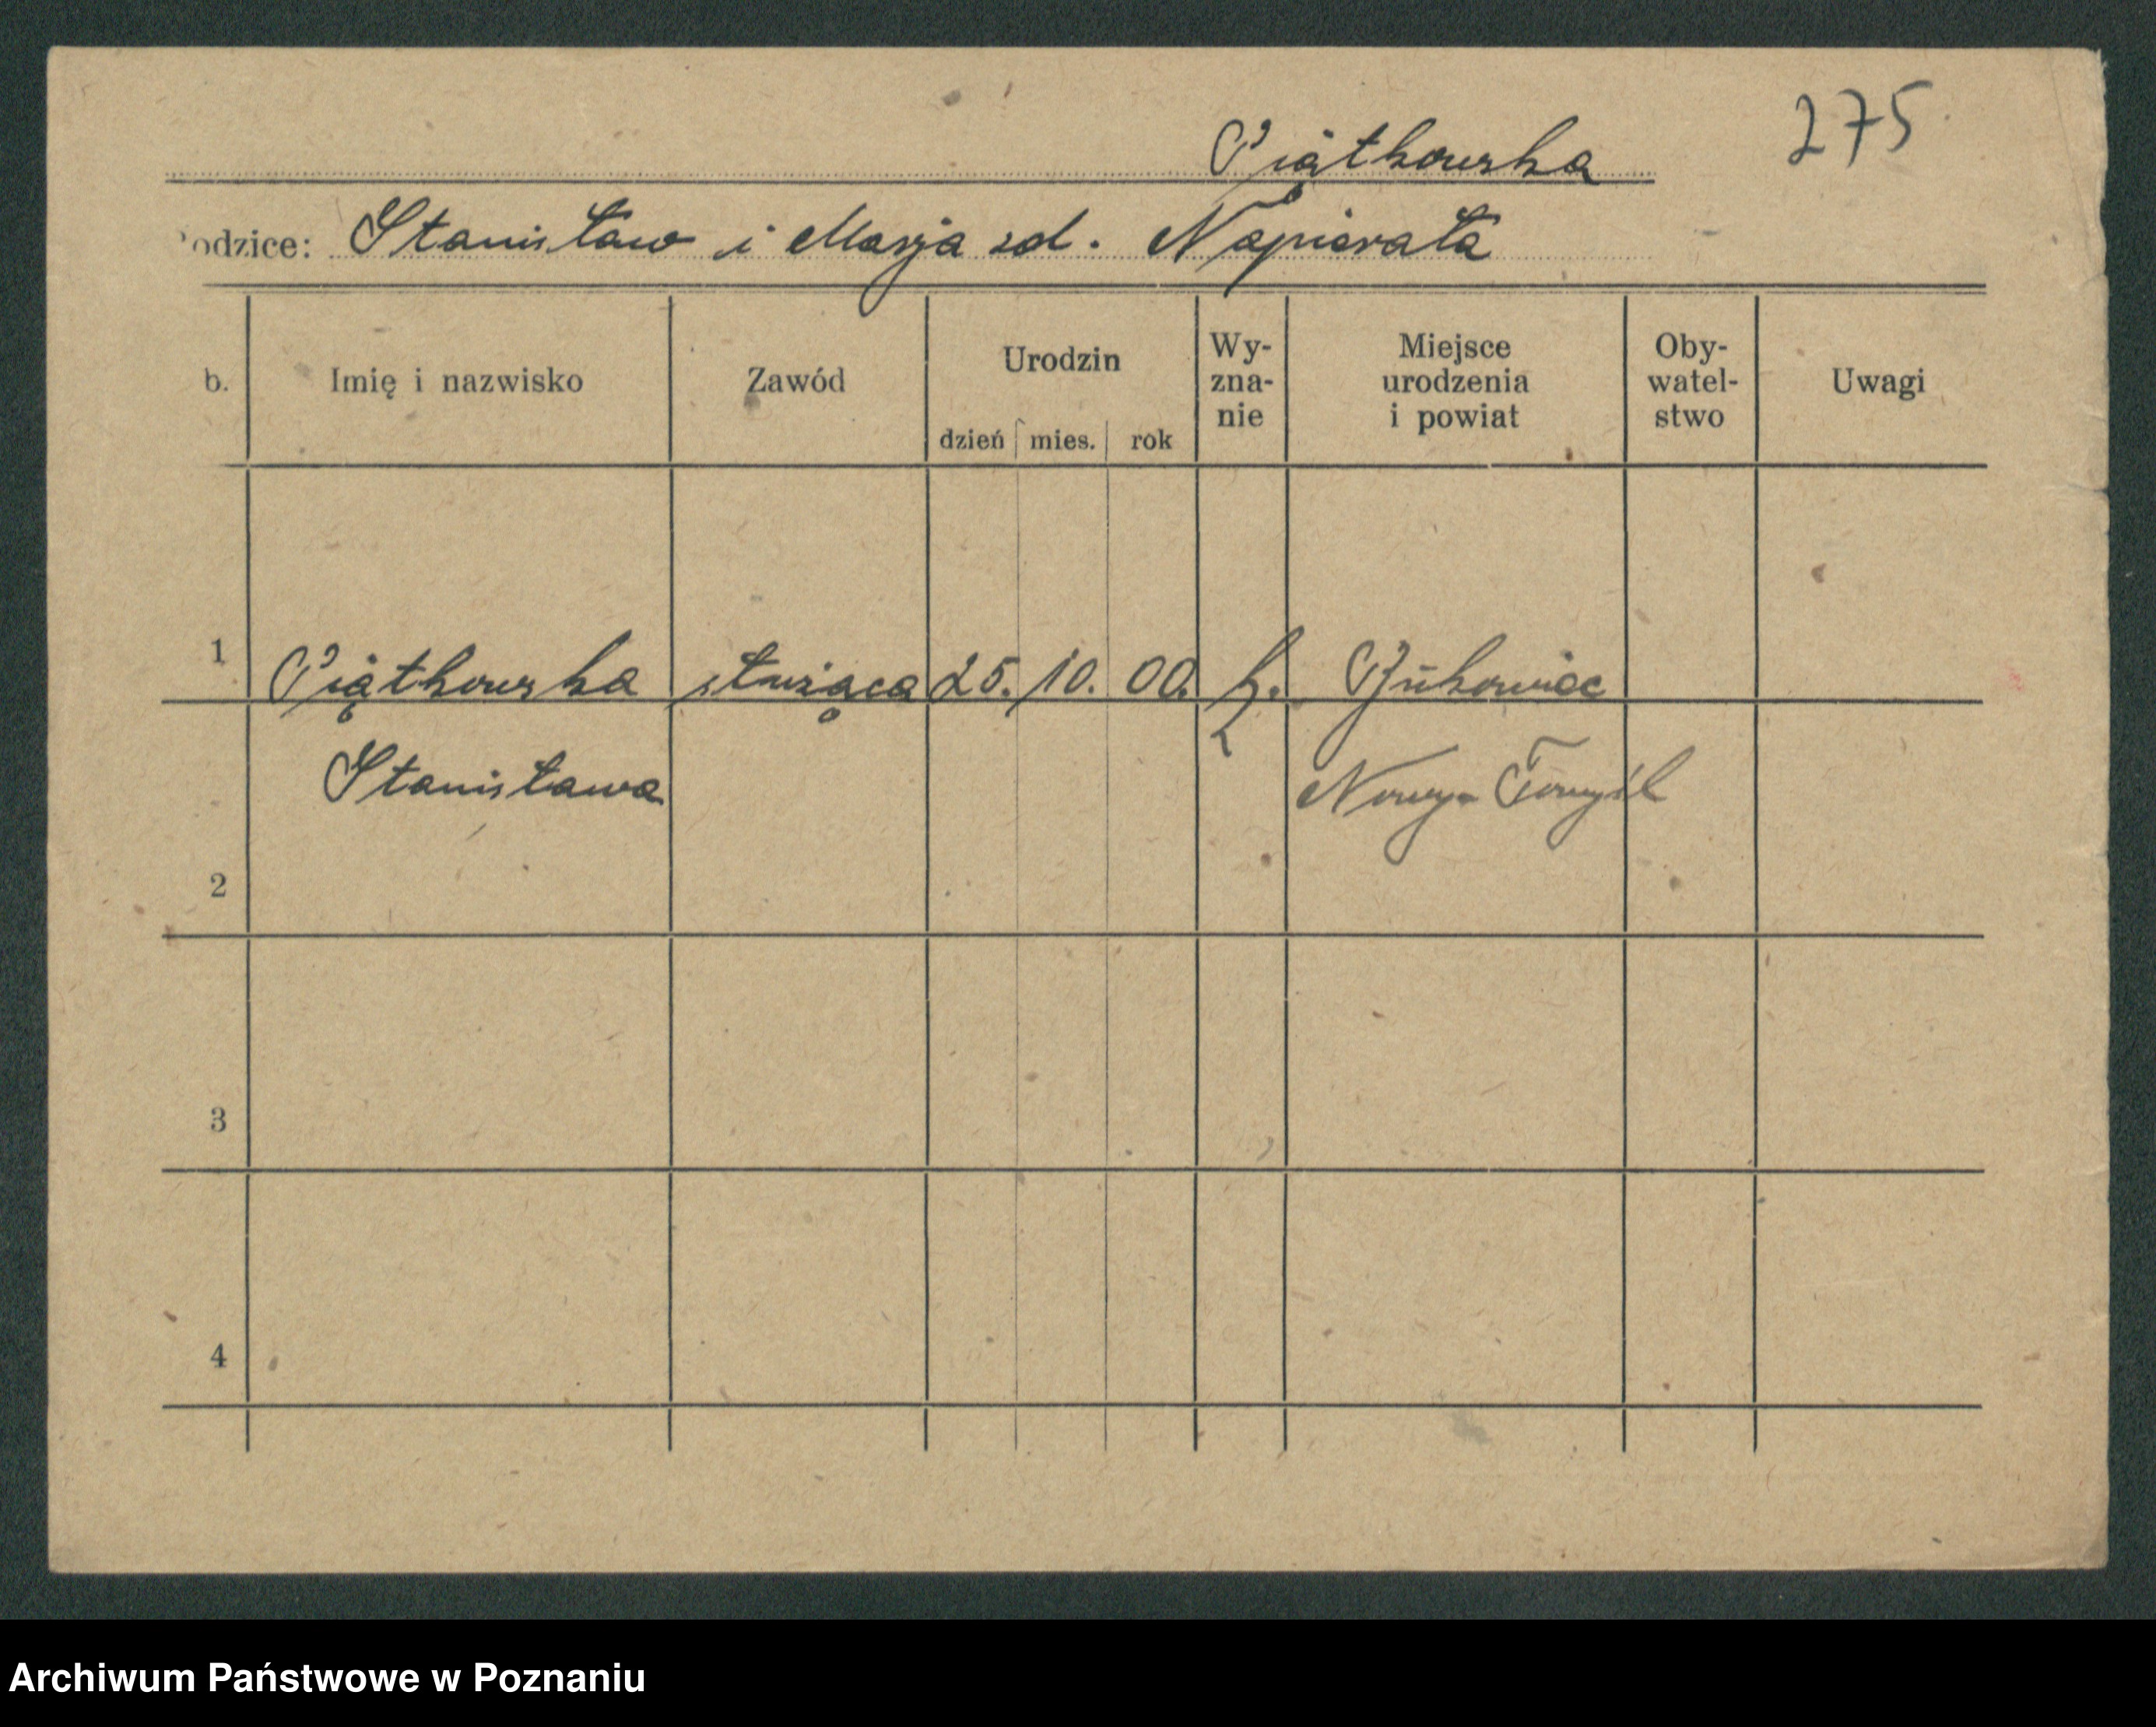 275
Piątkowska
odzice: Stanisław i Marja zd. Napierała
b. Imię i nazwisko Zawód Urodzin dzień mies. rok Wy-zna-nie Miejsce urodzenia i powiat Oby-watel-stwo Uwagi
1 Piątkowska służąca 25. 10. 00. k. Bukowiec
Stanisława Nowy-Tomyśl
2
3
4
Archiwum Państwowe w Poznaniu